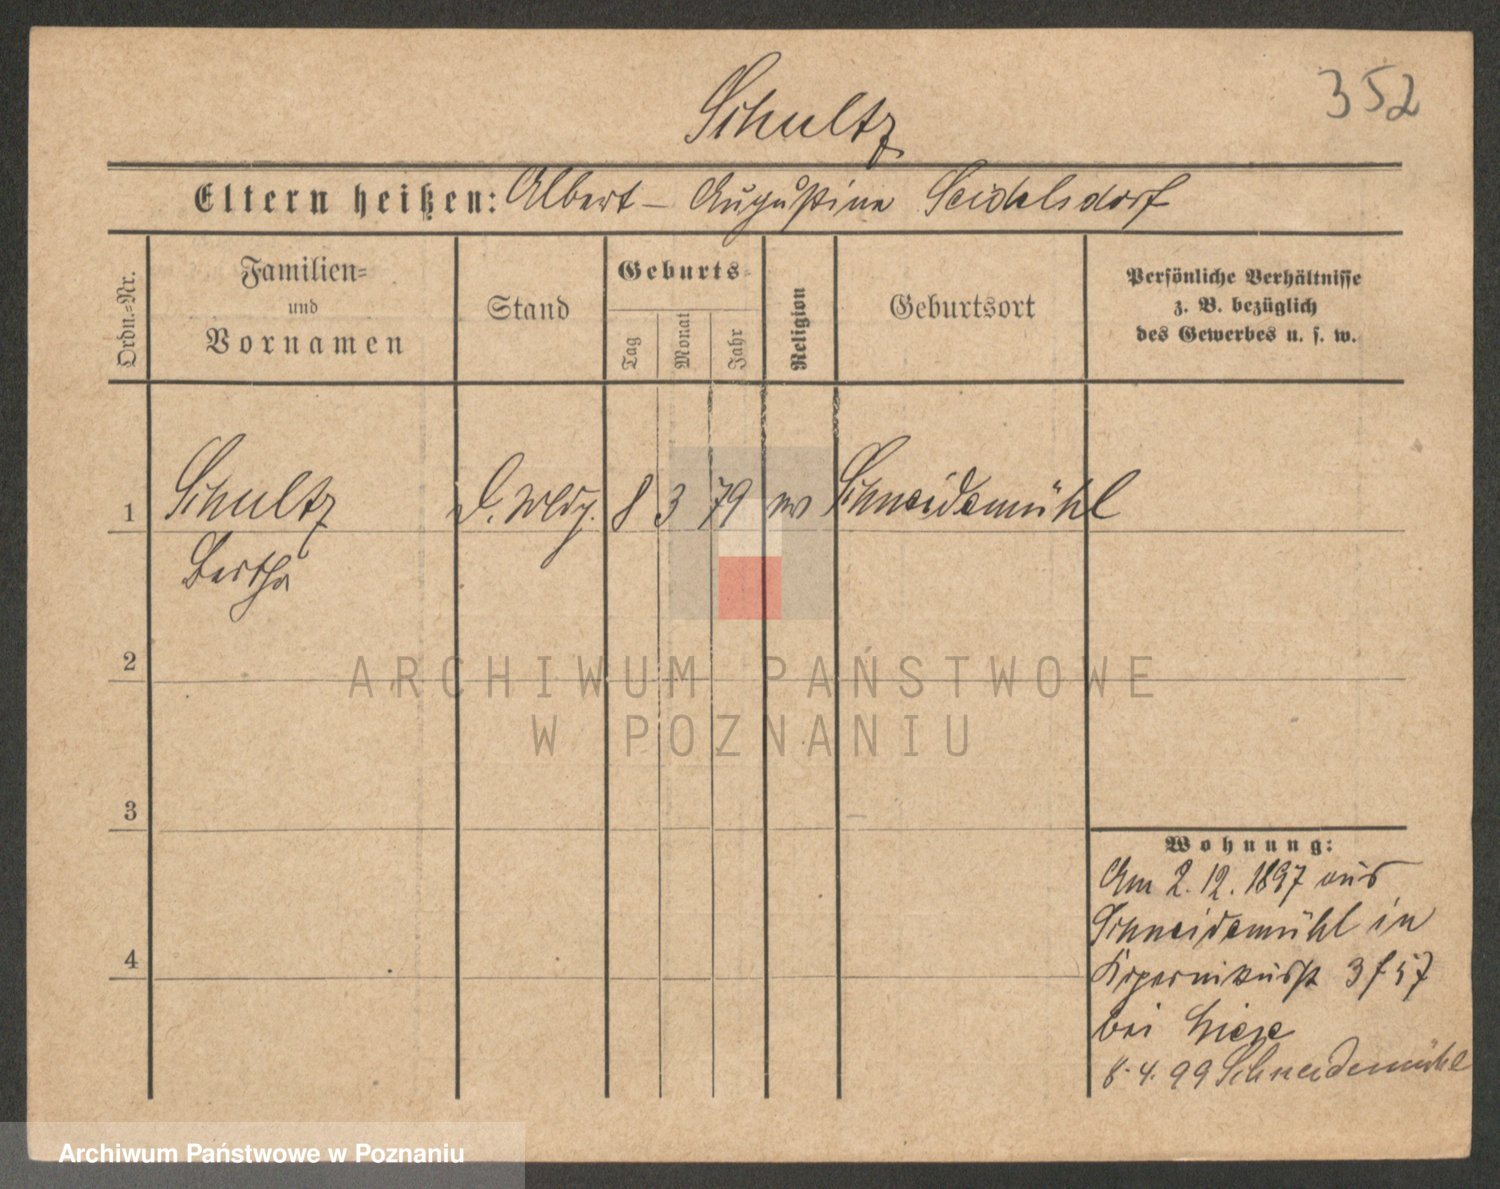 352
Schultz
Eltern heißen: Albert – Augustine Seidelsdorf
Ordn.=Nr.
Familien=
und
Vornamen
Stand
Geburts=
Tag
Monat
Jahr
Religion
Geburtsort
Persönliche Verhältnisse
z. B. bezüglich
des Gewerbes u. s. w.
1 Schultz 8 3 79 Schneidemühl
Bertha
2
3
4
ARCHIWUM PAŃSTWOWE
W POZNANIU
Wohnung:
Am 2. 12. 1897 aus
Schneidemühl in
bei
8. 4. 99 Schneidemühl
Archiwum Państwowe w Poznaniu